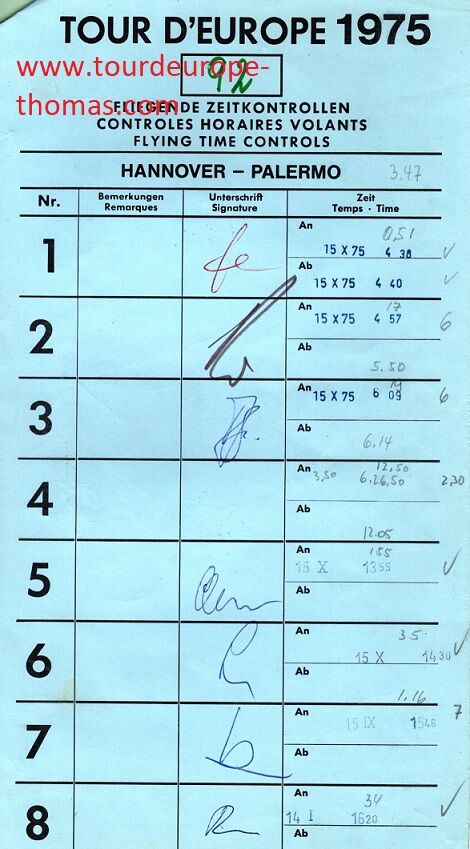 TOUR D'EUROPE 1975
www.tourdeurope-
thomas.com
92
FLIEGENDE ZEITKONTROLLEN
CONTROLES HORAIRES VOLANTS
FLYING TIME CONTROLS
HANNOVER – PALERMO 3.47
Nr. Bemerkungen Remarques Unterschrift Signature Zeit Temps · Time
1
An 0,51
15 X 75 4 38 ✓
Ab
15 X 75 4 40 ✓
2
An 17
15 X 75 4 57 6
Ab
5.50
3
An 19
15 X 75 6 09 6
Ab
6.14
4
An 3,50 12,50
6,26,50 2,30
Ab
12.05
5
An 155
15 X 1355 ✓
Ab
6
An 35
15 X 1430 ✓
Ab
1.16
7
An
15 IX 1546 7
Ab
8
An 34
14 I 1620 ✓
Ab